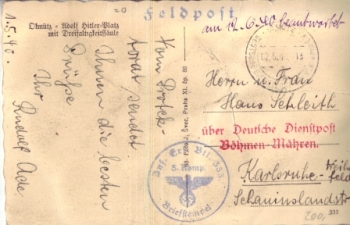 Olmütz - Adolf Hitler-Platz
mit Dreifaltigkeitssäule
Feldpost
am 12.6.40 beantwortet
1.5.40.
Vom Protek-
torat sendet
Ihnen die besten
Grüße
Ihr Rudolf Ade
Herrn u. Frau
Hans Schleith
über Deutsche Dienstpost
Böhmen-Mähren.
Karlsruhe
Schauinslandstr
Briefstempel